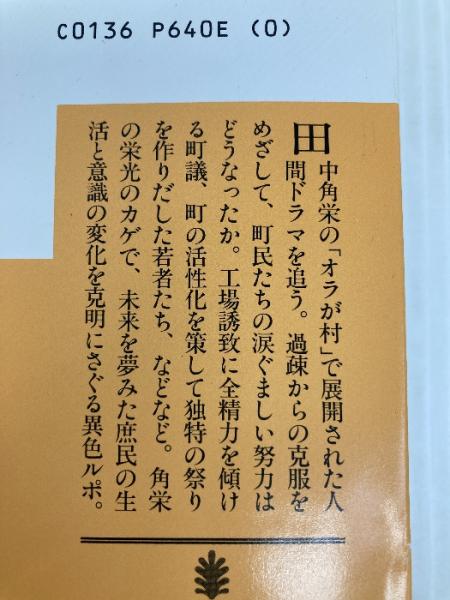 C0136 P640E (0)
田中角栄の「オラが村」で展開された人
間ドラマを追う。過疎からの克服を
めざして、町民たちの涙ぐましい努力は
どうなったか。工場誘致に全精力を傾け
る町議、町の活性化を策して独特の祭り
を作りだした若者たち、などなど。角栄
の栄光のカゲで、未来を夢みた庶民の生
活と意識の変化を克明にさぐる異色ルポ。